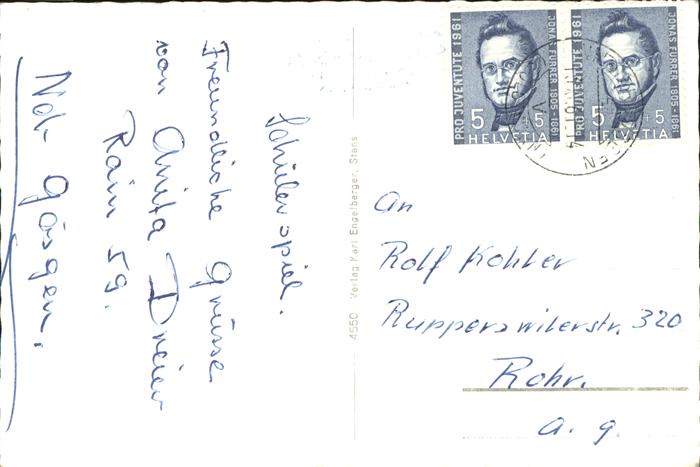 Schülerspiel.
Freundliche Grüsse
von Anita Dreier
Rain 59.
Ndr Gösgen.
4550 Verlag Karl Engelberger, Stans
PRO JUVENTUTE 1961
JONAS FURRER 1805-1861
5 +5
HELVETIA
PRO JUVENTUTE 1961
JONAS FURRER 1805-1861
5 +5
HELVETIA
An
Rolf Kohler
Rupperswilerstr. 320
Rohr.
a. g.